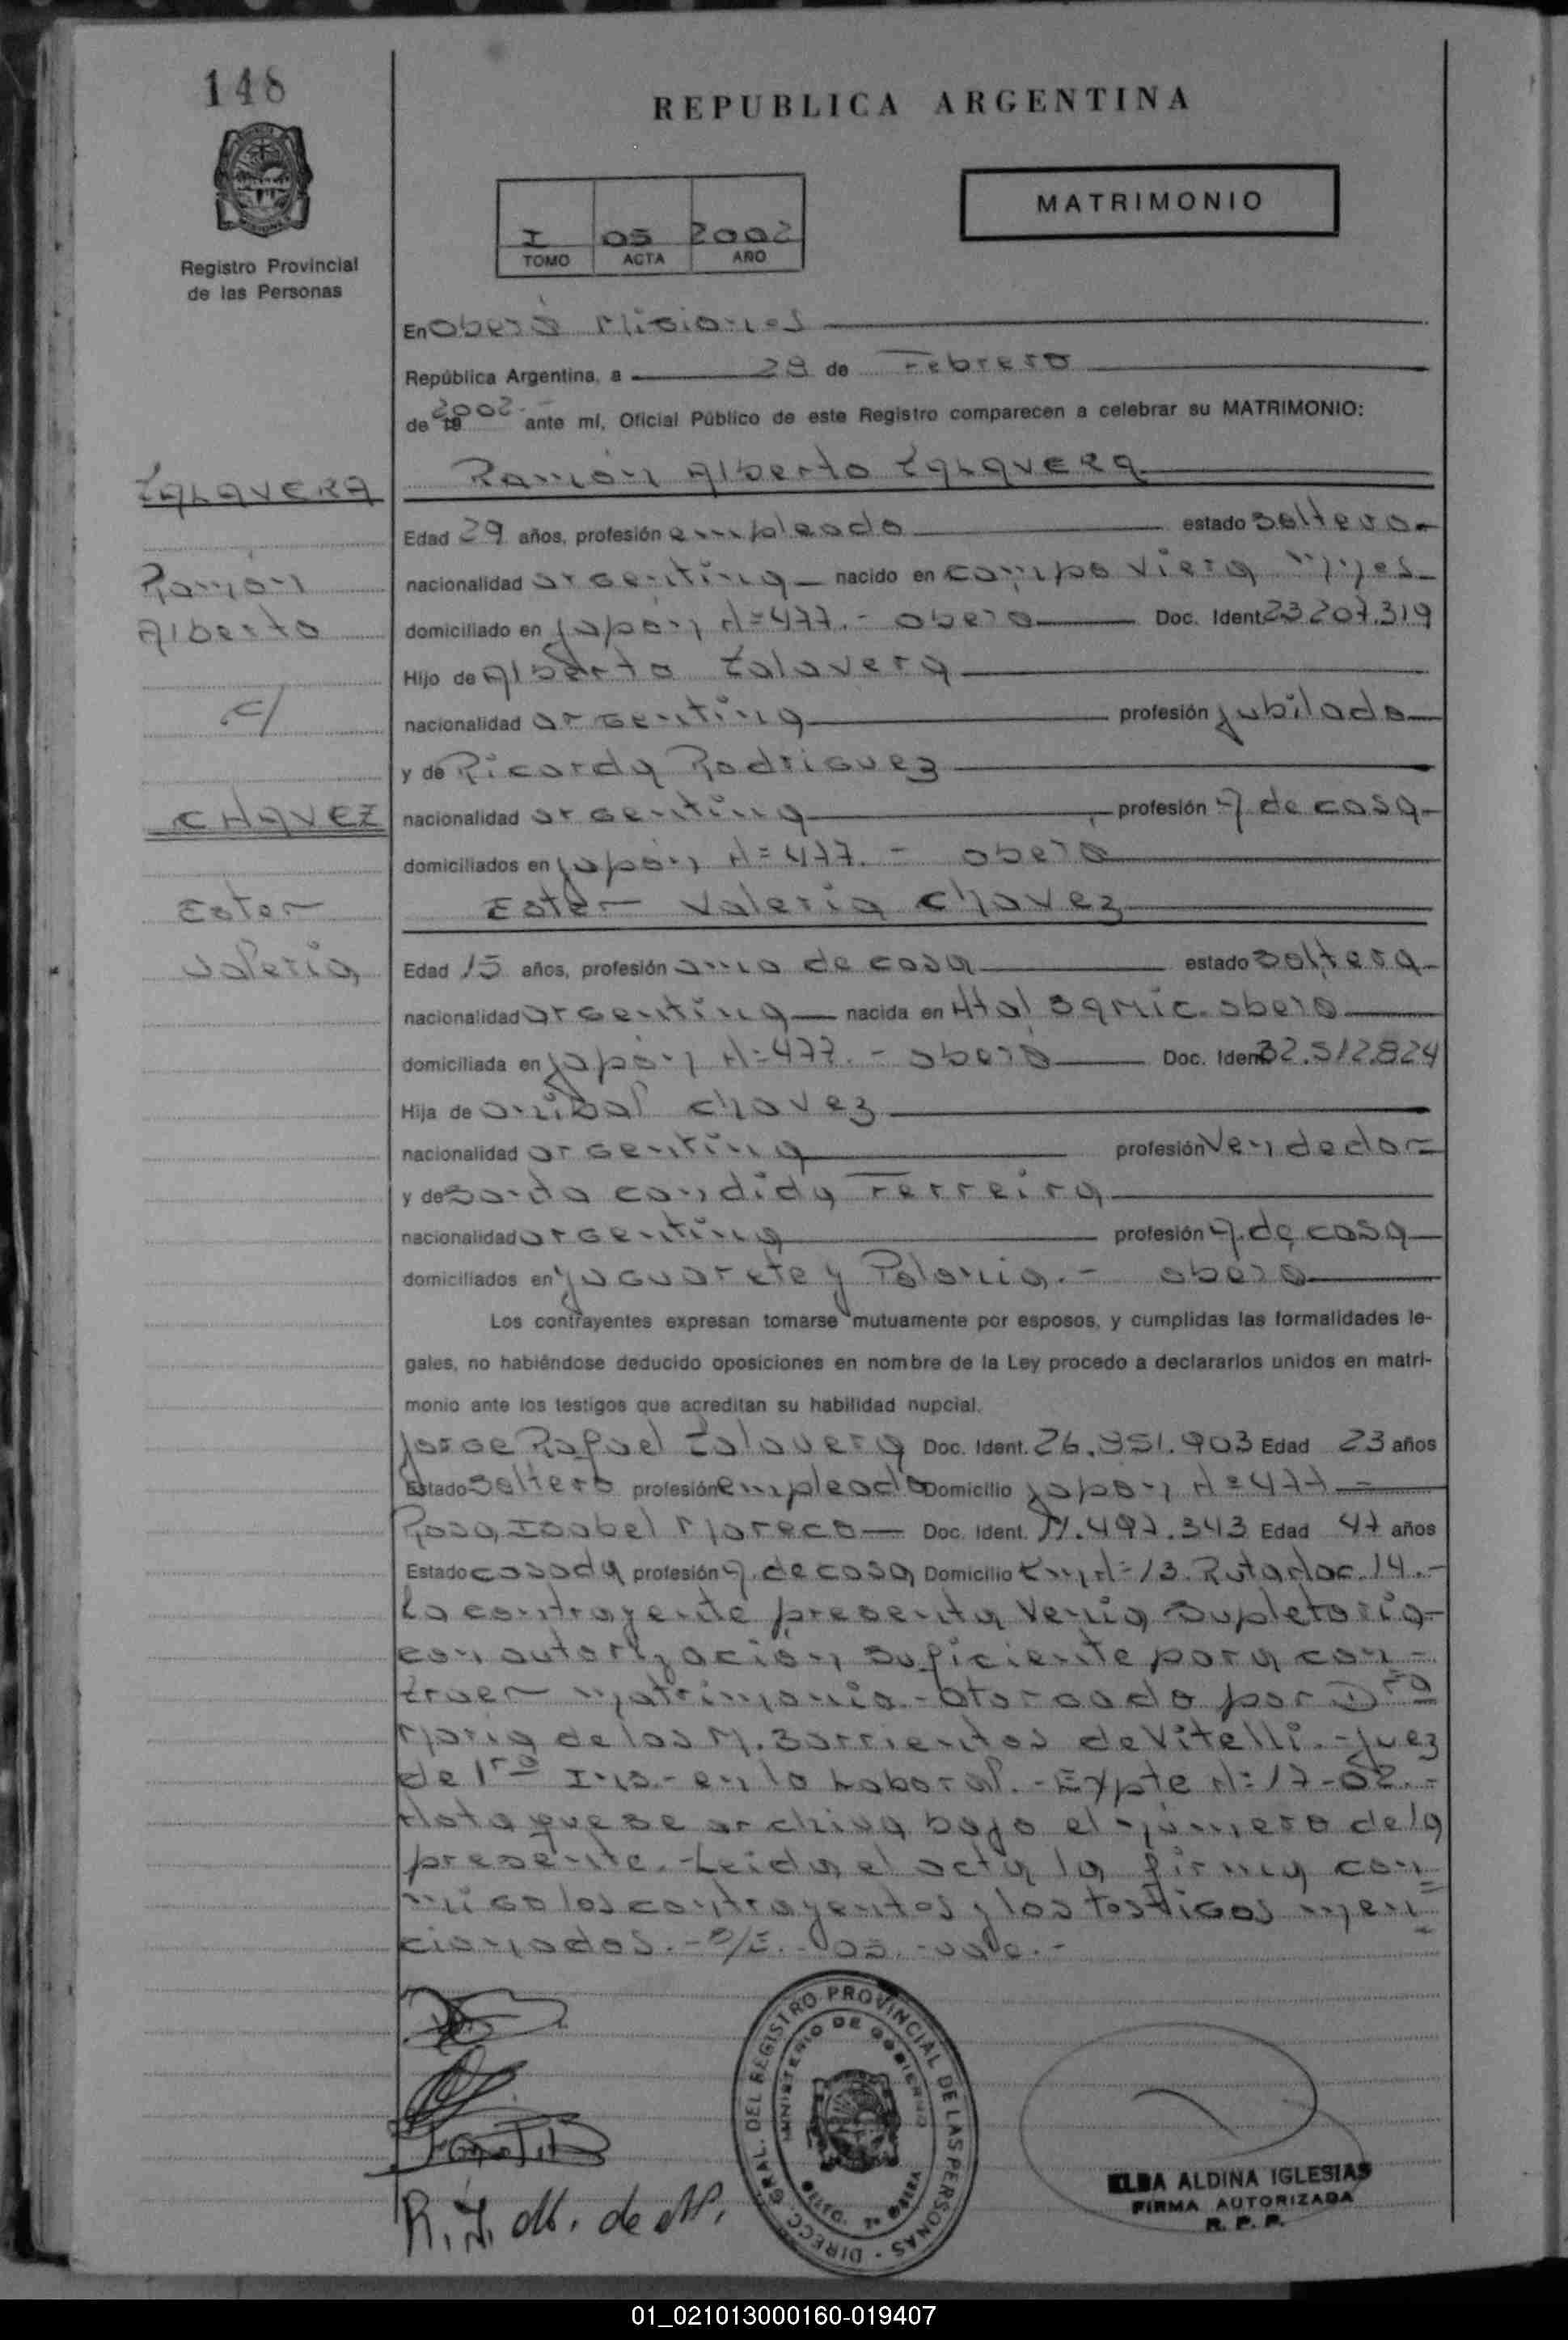 148
REPUBLICA ARGENTINA
MATRIMONIO
I 05 2002
TOMO ACTA AÑO
Registro Provincial
de las Personas
En Oberá Misiones
República Argentina, a 28 de Febrero
de 19 2002.- ante mí, Oficial Público de este Registro comparecen a celebrar su MATRIMONIO:
Ramón Alberto TALAVERA
TALAVERA
Edad 29 años, profesión empleado estado soltero
Ramón
nacionalidad argentina nacido en campo Viera Mnes
Alberto
domiciliado en Japón N=477.- Oberá Doc. Ident 23.207.319
Hijo de Alberto Talavera
c/
nacionalidad argentina profesión jubilado
y de Ricarda Rodriguez
CHAVEZ
nacionalidad argentina profesión a de casa
domiciliados en Japón N=477.- Oberá
Ester
Ester Valeria Chavez
Valeria
Edad 15 años, profesión ama de casa estado soltera
nacionalidad argentina nacida en Htal Samic. Oberá
domiciliada en Japón N=477.- Oberá Doc. Ident 32.512.824
Hija de Anibal Chavez
nacionalidad argentina profesión Vendedor
y de candida Ferreira
nacionalidad argentina profesión a. de casa
domiciliados en Yaguarete y Polonia.- Oberá
Los contrayentes expresan tomarse mutuamente por esposos, y cumplidas las formalidades le-
gales, no habiéndose deducido oposiciones en nombre de la Ley procedo a declararlos unidos en matri-
monio ante los testigos que acreditan su habilidad nupcial.
Jorge Rafael Talavera Doc. Ident. 26.951.903 Edad 23 años
Estado soltero profesión empleado Domicilio Japón N=477
Rosa Isabel Moreco Doc. Ident. 11.497.343 Edad 47 años
Estado casada profesión a. de casa Domicilio Km N=13. Ruta Nac. 14.-
La contrayente presenta Venia Supletoria
con autorización suficiente para con-
traer matrimonio.- Otorgado por Dra
Maria de los M. Barrientos de Vitelli.- Juez
de 1ra Ins.- en lo Laboral.- Expte N=17-02.-
Nota que se archiva bajo el número de la
presente.- Leida el acta la firman con-
migo los contrayentes y los testigos men-
cionados.- S/E.- 05.- vale.-
R. I. M. de M.
DIRECC. GRAL. DEL REGISTRO PROVINCIAL DE LAS PERSONAS
MINISTERIO DE GOBIERNO
ELBA ALDINA IGLESIAS
FIRMA AUTORIZADA
R. P. P.
01_021013000160-019407